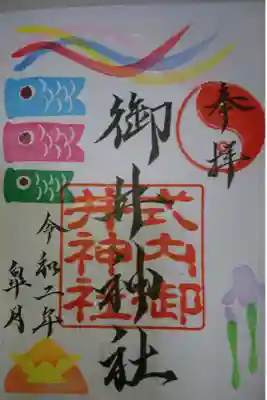 奉拝
御井神社
式内御
井神社
令和二年
皐月